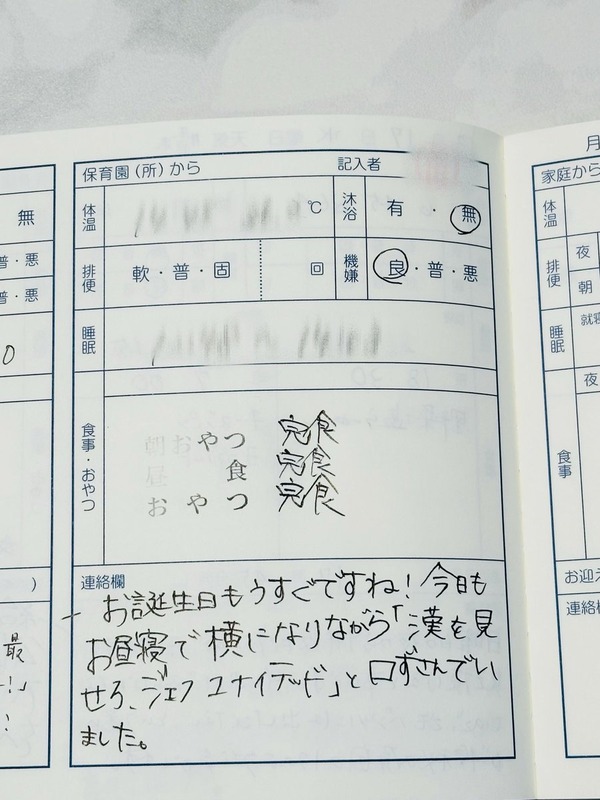 月
保育園(所)から 記入者
家庭から
無
体温 ℃ 沐浴 有・無
体温
普・悪
普・悪
排便 軟・普・固 回 機嫌 良・普・悪
排便 夜
朝
睡眠
睡眠 就寝
夜
食事・おやつ
朝おやつ 完食
昼食 完食
おやつ 完食
食事
お迎え
)
連絡欄
連絡欄
お誕生日もうすぐですね!今日も
お昼寝で横になりながら「漢を見
せろ、ジェフユナイテッド」と口ずさんでい
ました。
最
ー!」